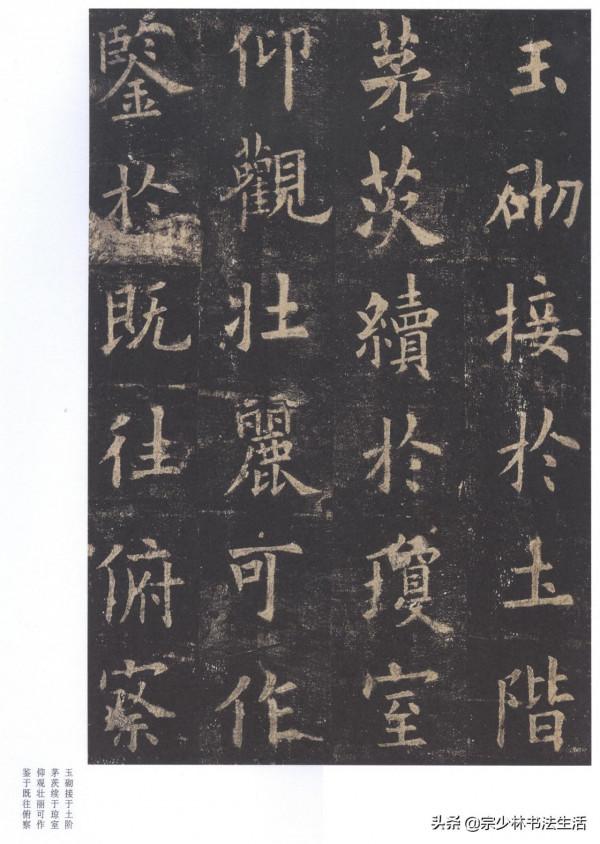 玉砌接於土階
茅茨續於瓊室
仰觀壯麗可作
鑒於既往俯察
玉砌接于土阶
茅茨续于琼室
仰观壮丽可作
鉴于既往俯察
头条@宗少林书法生活